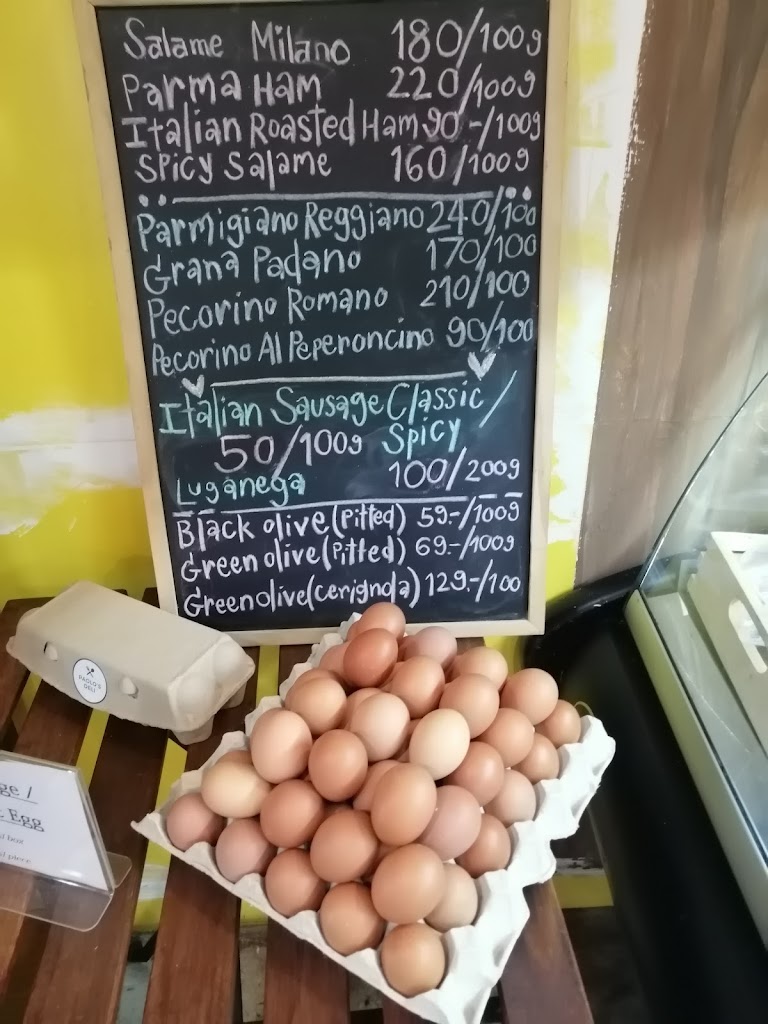 Salame Milano 180/100g
Parma Ham 220/100g
Italian Roasted Ham 90.-/100g
Spicy Salame 160/100g
Parmigiano Reggiano 240/100
Grana Padano 170/100
Pecorino Romano 210/100
Pecorino Al Peperoncino 90/100
Italian Sausage Classic/
50/100g Spicy
Luganega 100/200g
Black olive (Pitted) 59.-/100g
Green olive (Pitted) 69.-/100g
Green olive (cerignola) 129.-/100
PAOLO'S
DELI
ge /
Egg
box
piece